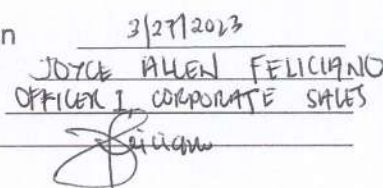 n 3/27/2023
JOYCE ALLEN FELICIANO
OFFICER I, CORPORATE SALES